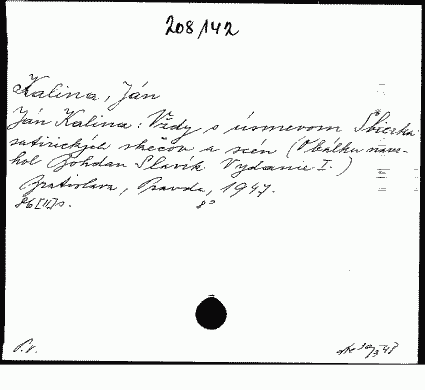 208/142
Kalina, Ján
Ján Kalina: Vždy s úsmevom Sbierka
satirických skečov a scén (Obálku navr-
hol Bohdan Slavík Vydanie I.)
Bratislava, Pravda, 1947.
86[II]s. 8°
P.V.